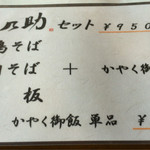 助 セット ￥950
そば
そば ＋ かやく御
板
かやく御飯 単品 ￥